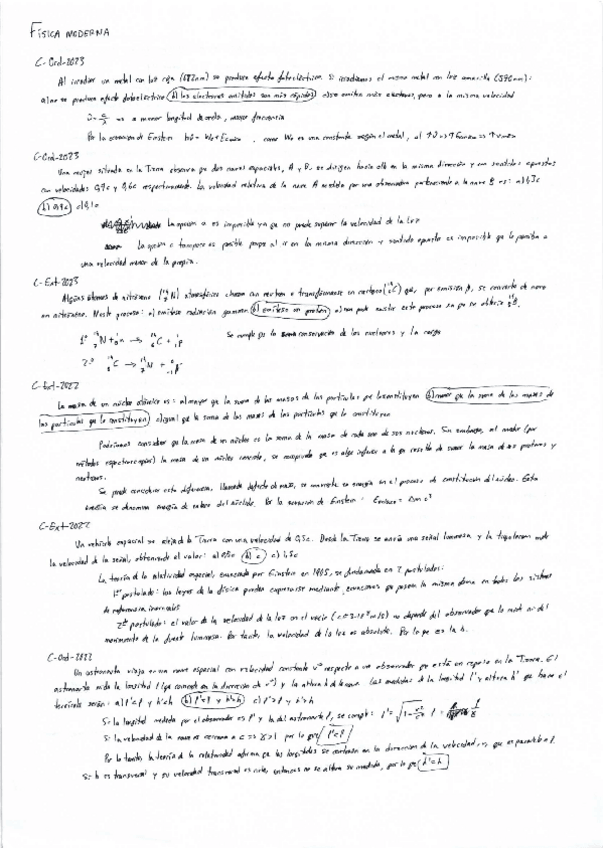 FÍSICA MODERNA
C-Ord-2023
Al irradiar un metal con luz roja (682nm) se produce efecto fotoeléctrico. Si irradiamos el mismo metal con luz amarilla (570nm):
a) no se produce efecto fotoeléctrico b) los electrones emitidos son más rápidos c) se emiten más electrones, pero a la misma velocidad
a menor longitud de onda, mayor frecuencia
Por la ecuación de Einstein, como We es una constante según el metal, al
C-Ord-2023
situada en la Tierra observa que dos naves espaciales, A y B, se dirigen hacia ella en la misma dirección y con sentidos opuestos
con velocidades 0,9c y 0,6c respectivamente. La velocidad relativa de la nave A medida por una observadora perteneciente a la nave B es: a) 1,3c
b) 0,9c c) 0,1c
La opción a es imposible ya que no puede superar la velocidad de la luz
La opción c tampoco es posible porque al ir en la misma dirección y sentido opuesto es imposible que le perciba a
una velocidad menor de la propia.
C-Ext-2023
Algunos átomos de nitrógeno (¹⁴₇N) atmosférico chocan con un neutrón y se transforman en carbono (¹⁴₆C) que, por emisión β, se convierte de nuevo
en nitrógeno. En este proceso: a) se emite radiación gamma b) se emite un protón c) no puede existir este proceso ya que se obtiene
1º ¹⁴₇N + ¹₀n → ¹⁴₆C + ¹₁p Se cumple la conservación de los nucleones y la carga
2º ¹⁴₆C → ¹⁴₇N + ⁰₋₁β
C-Ext-2022
La masa de un núcleo atómico es: a) mayor que la suma de las masas de las partículas que lo constituyen b) menor que la suma de las masas de
las partículas que lo constituyen c) igual que la suma de las masas de las partículas que lo constituyen
Podríamos considerar que la masa de un núcleo es la suma de la masa de cada uno de sus nucleones. Sin embargo, al medir (por
métodos espectroscópicos) la masa de un núcleo concreto, se comprueba que es algo inferior a la que resulta de sumar la masa de sus protones y
neutrones.
Se puede considerar esta diferencia, llamada defecto de masa, se convierte en energía en el proceso de constitución del núcleo. Esta
energía se denomina energía de enlace del núclido. Por la ecuación de Einstein: = Δm c²
C-Ext-2022
Un vehículo espacial se aleja de la Tierra con una velocidad de 0,5c. Desde la Tierra se envía una señal luminosa y la tripulación mide
la velocidad de la señal, obteniendo el valor: a) 0,5c b) c c) 1,5c
La teoría de la relatividad especial, enunciada por Einstein en 1905, se fundamenta en 2 postulados:
1er postulado: las leyes de la física pueden expresarse mediante ecuaciones que poseen la misma forma en todos los sistemas
de referencia inerciales
2º postulado: el valor de la velocidad de la luz en el vacío (c=3·10⁸ m/s) no depende del observador que la mide ni del
movimiento de la fuente luminosa. Por tanto, la velocidad de la luz es absoluta. Por lo que es la b.
C-Ord-2022
Un astronauta viaja en una nave espacial con velocidad constante v respecto a un observador que está en reposo en la Tierra. El
astronauta mide la longitud l (que coincide con la dirección de v) y la altura h de la nave. Las medidas de la longitud l' y altura h' que hace el
terrícola serán: a) l'<l y h'<h b) l'<l y h'=h c) l'>l y h'>h
Si la longitud medida por el observador es l' y la del astronauta l, se cumple:
Si la velocidad de la nave es cercana a c => γ>1 por lo que l'<l
Por lo tanto, la teoría de la relatividad afirma que las longitudes se contraen en la dirección de la velocidad, v, que es paralela a l.
Si h es transversal y su velocidad transversal es nula, entonces no se altera su medida, por lo que h'=h